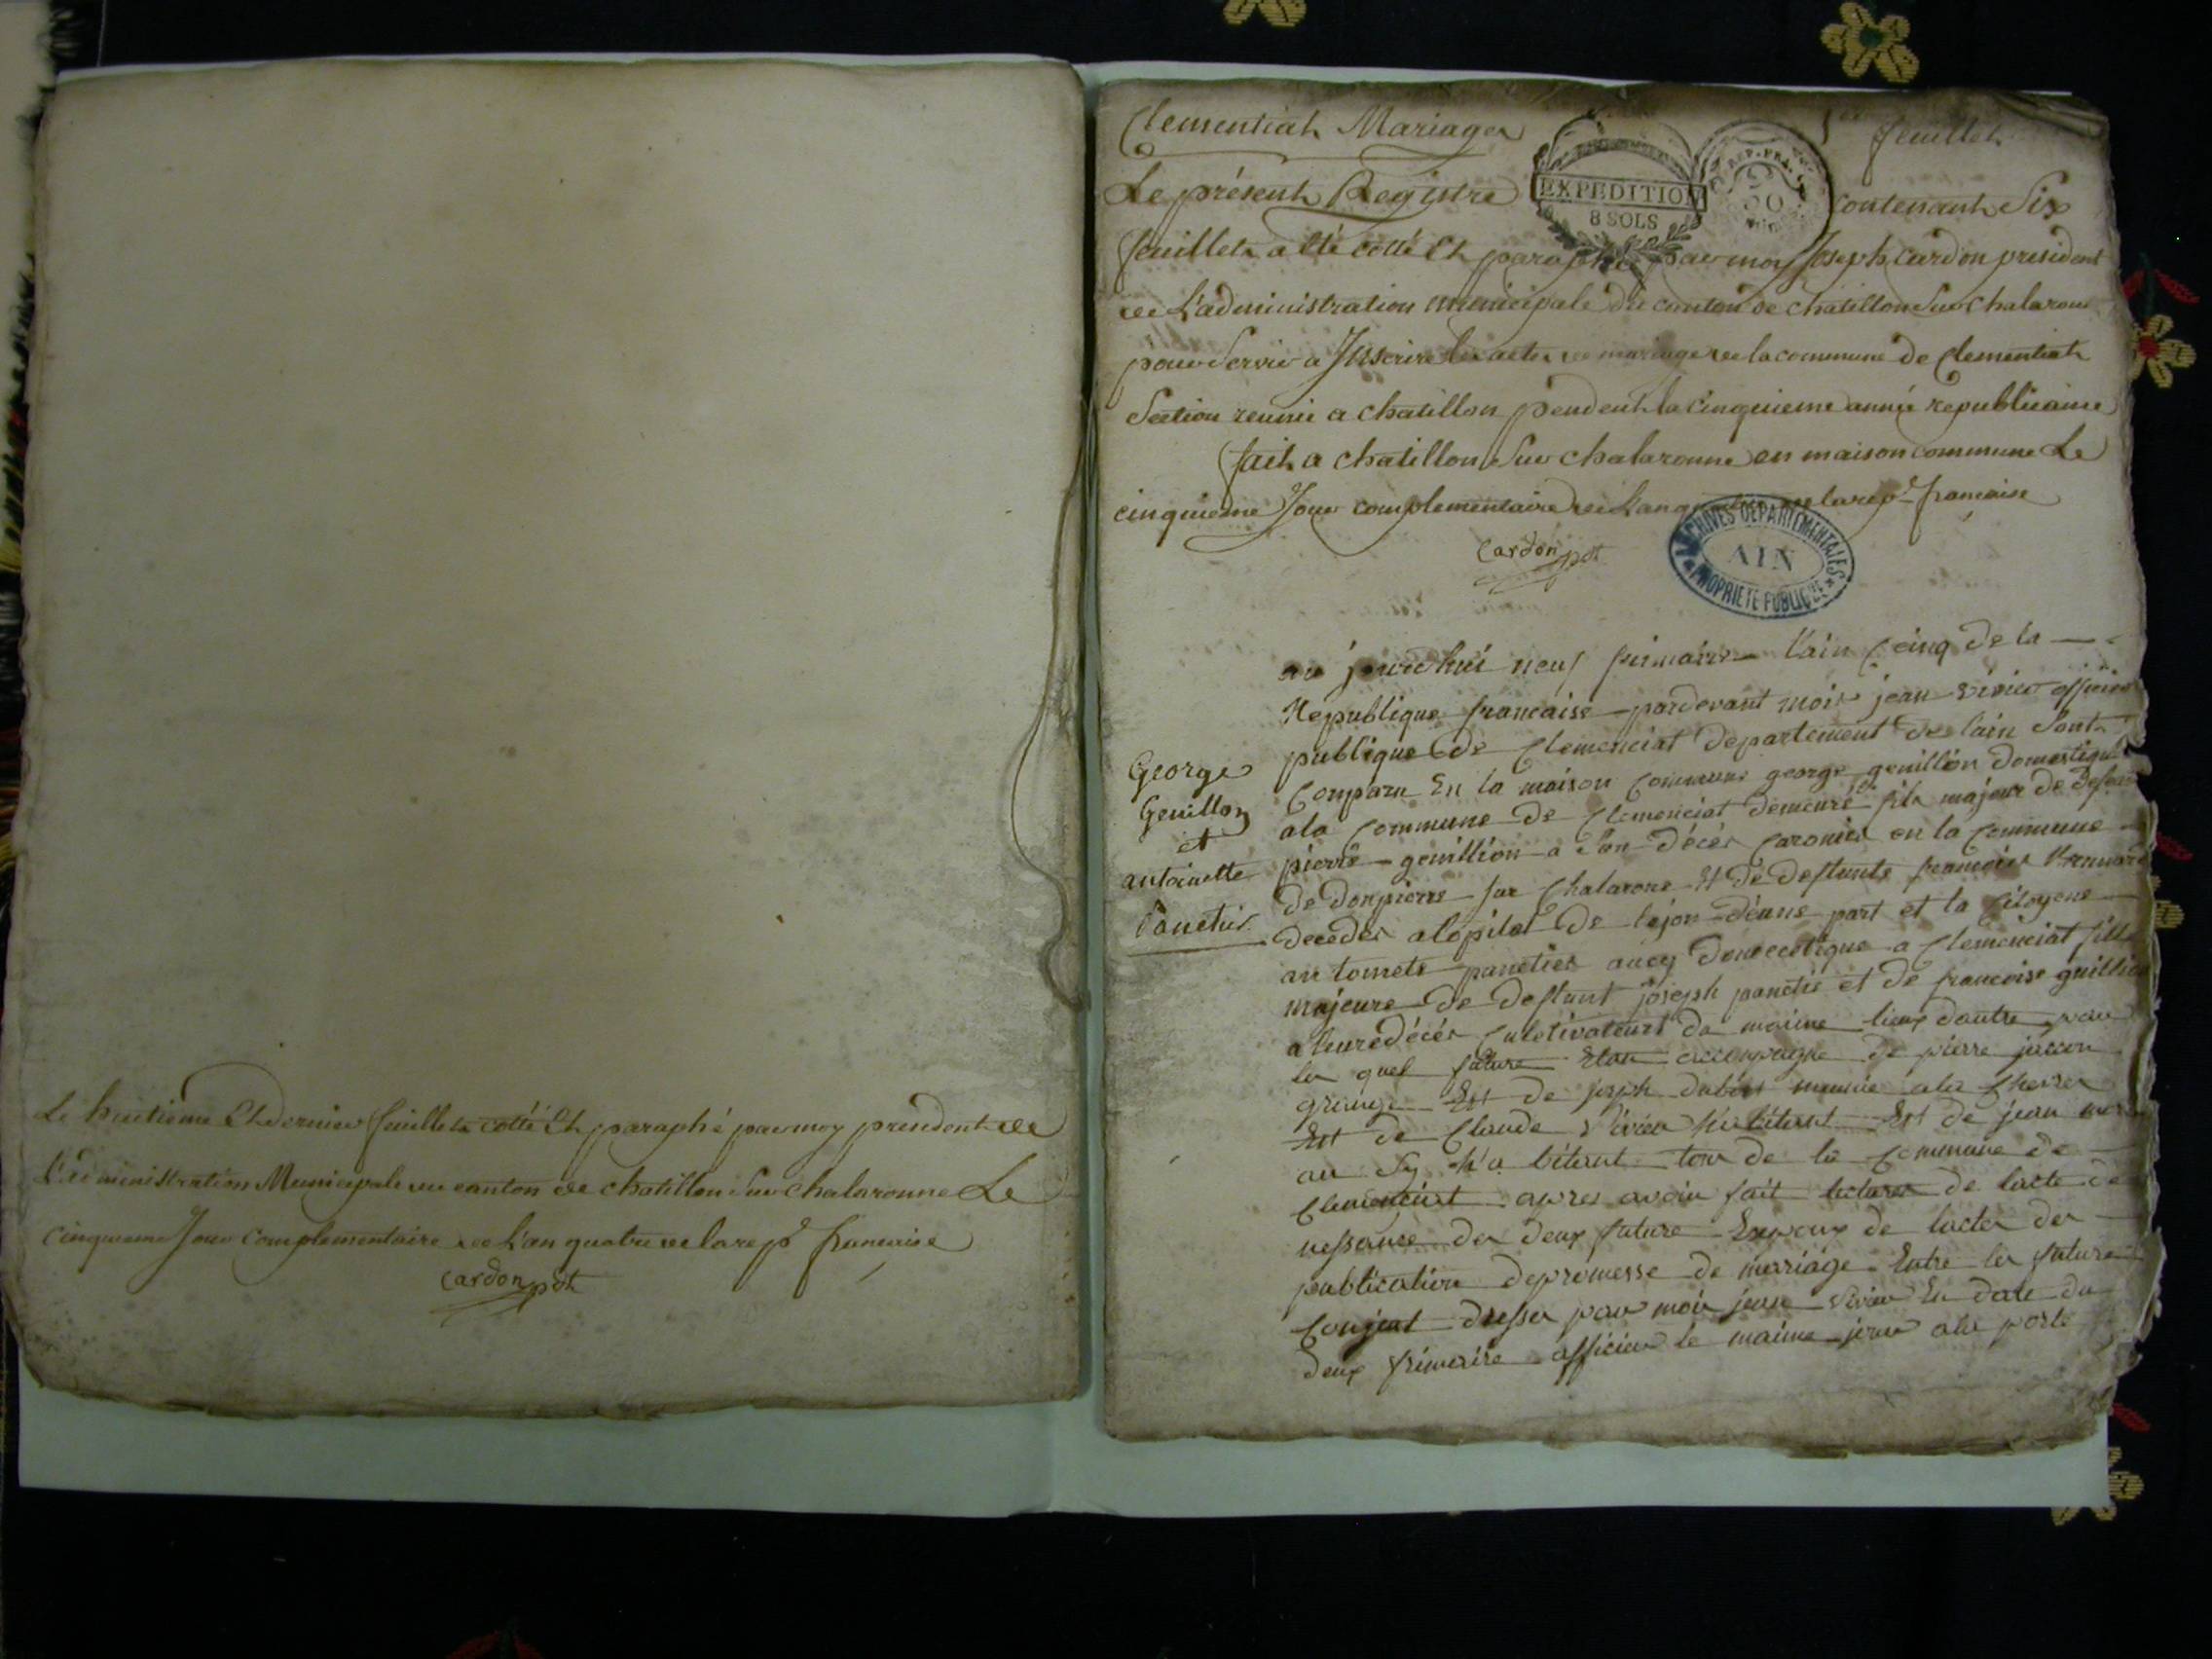 Le huitieme Et dernier feuillet cotté Et paraphé par moy president de
L'administration Municipale du canton de chatillon Sur chalaronne Le
cinquieme Jour complementaire de L'an quatre de la rep.e francaise
Cardon pdt
Clementiat Mariages
1er feuillet
EXPEDITION
8 SOLS
REP. FRA.
50
Le présent Registre contenant Six
feuillets a été cotté Et paraphé par moy Joseph Cardon president
de L'administration municipale du canton de chatillon Sur Chalaronne
pour Servir a Inscrire les actes de mariage de la commune de Clementiat
Section reunie a chatillon pendent la cinquieme année republicaine
fait a chatillon Sur chalaronne en maison commune Le
cinquieme Jour complementaire de L'an quatre de la rep.e francaise
Cardon pdt
ARCHIVES DEPARTEMENTALES
AIN
PROPRIETE PUBLIQUE
George
Genillon
et
antoinette
Panetier
au jourdhui neuf frimaire l'ain Cinq de la
Republique francaise pardevant mois jean vivier officier
publique de Clemenciat departement de lain Sont
Comparu En la maison Commune george genillon domestique
ala Commune de Clemenciat demeure fils majeur de defun
pierre genillion a Son décès en la Commune
de donpierre sur Chalarone Et de deffunte francoise
decedes alopital de lion deune part et la Citoyene
antoinete panetier aucy domecetique a Clemenciat fille
majeure de deffunt joseph panetie et de francoise guillion
a leure décès Culetivateurs da maime lieux dautre par
les quel future Etan accompagne de pierre
grange Est de joseph dubost ala
Est de Claude vivier h'abitant Est de jean
au Sy h'a bitant tous de la Commune de
Clemenciat apres avoir fait lecture de lacte de
nessance des deux future Epoux de lacte de
publication depromesse de mariage Entre les future
Conjoint dresser par mois jean vivier En date du
deux frimaire afficier le maime jour ala porte